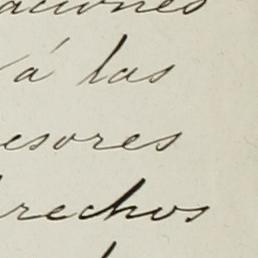 aciones
á las
esores
derechos